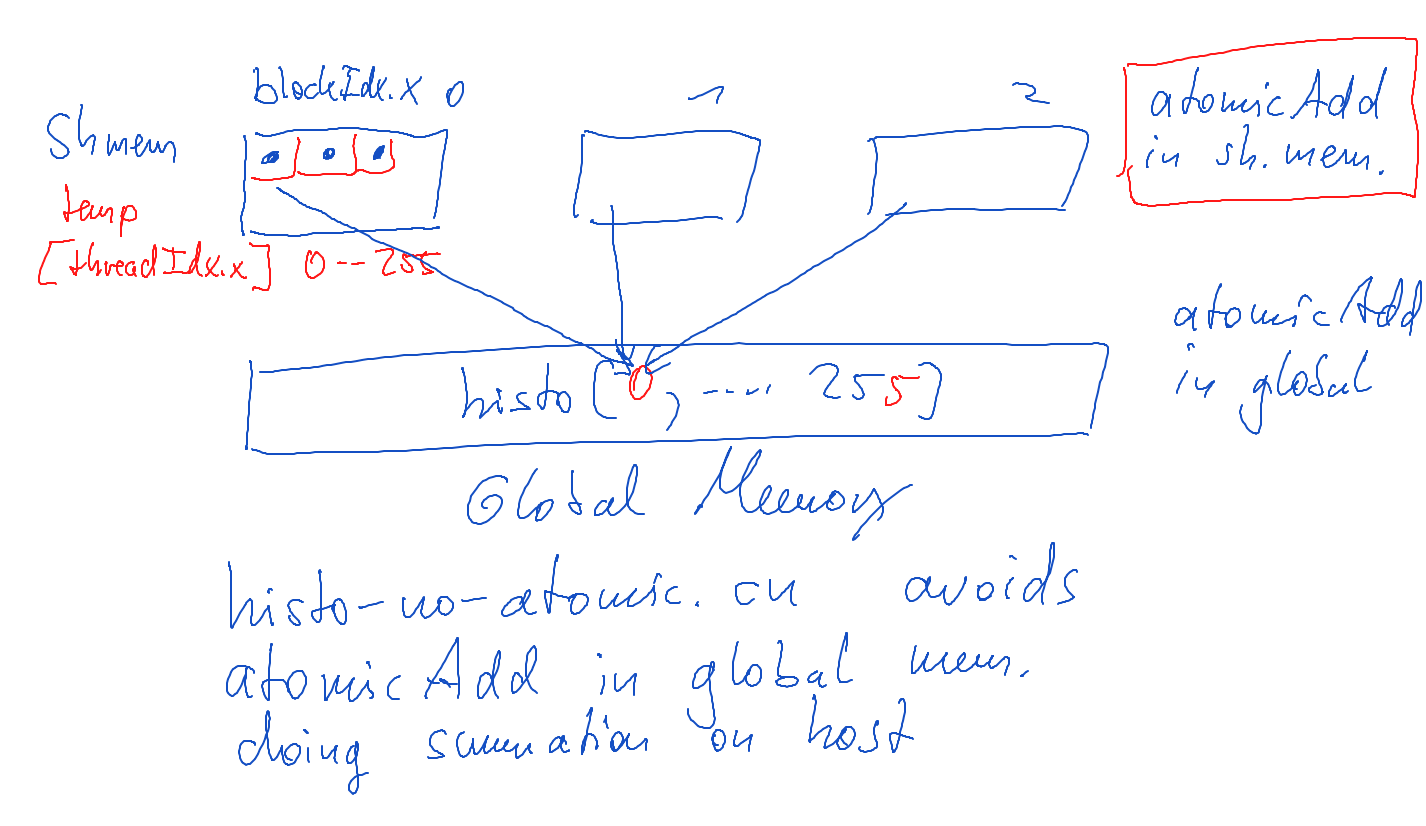 blockIdx.x 0 1 2
Shmem
temp
[threadIdx.x] 0--255
atomicAdd
in sh. mem.
atomicAdd
in global
histo[0, ---- 255]
Global Memory
histo-no-atomic.cu avoids
atomicAdd in global mem.
doing summation on host